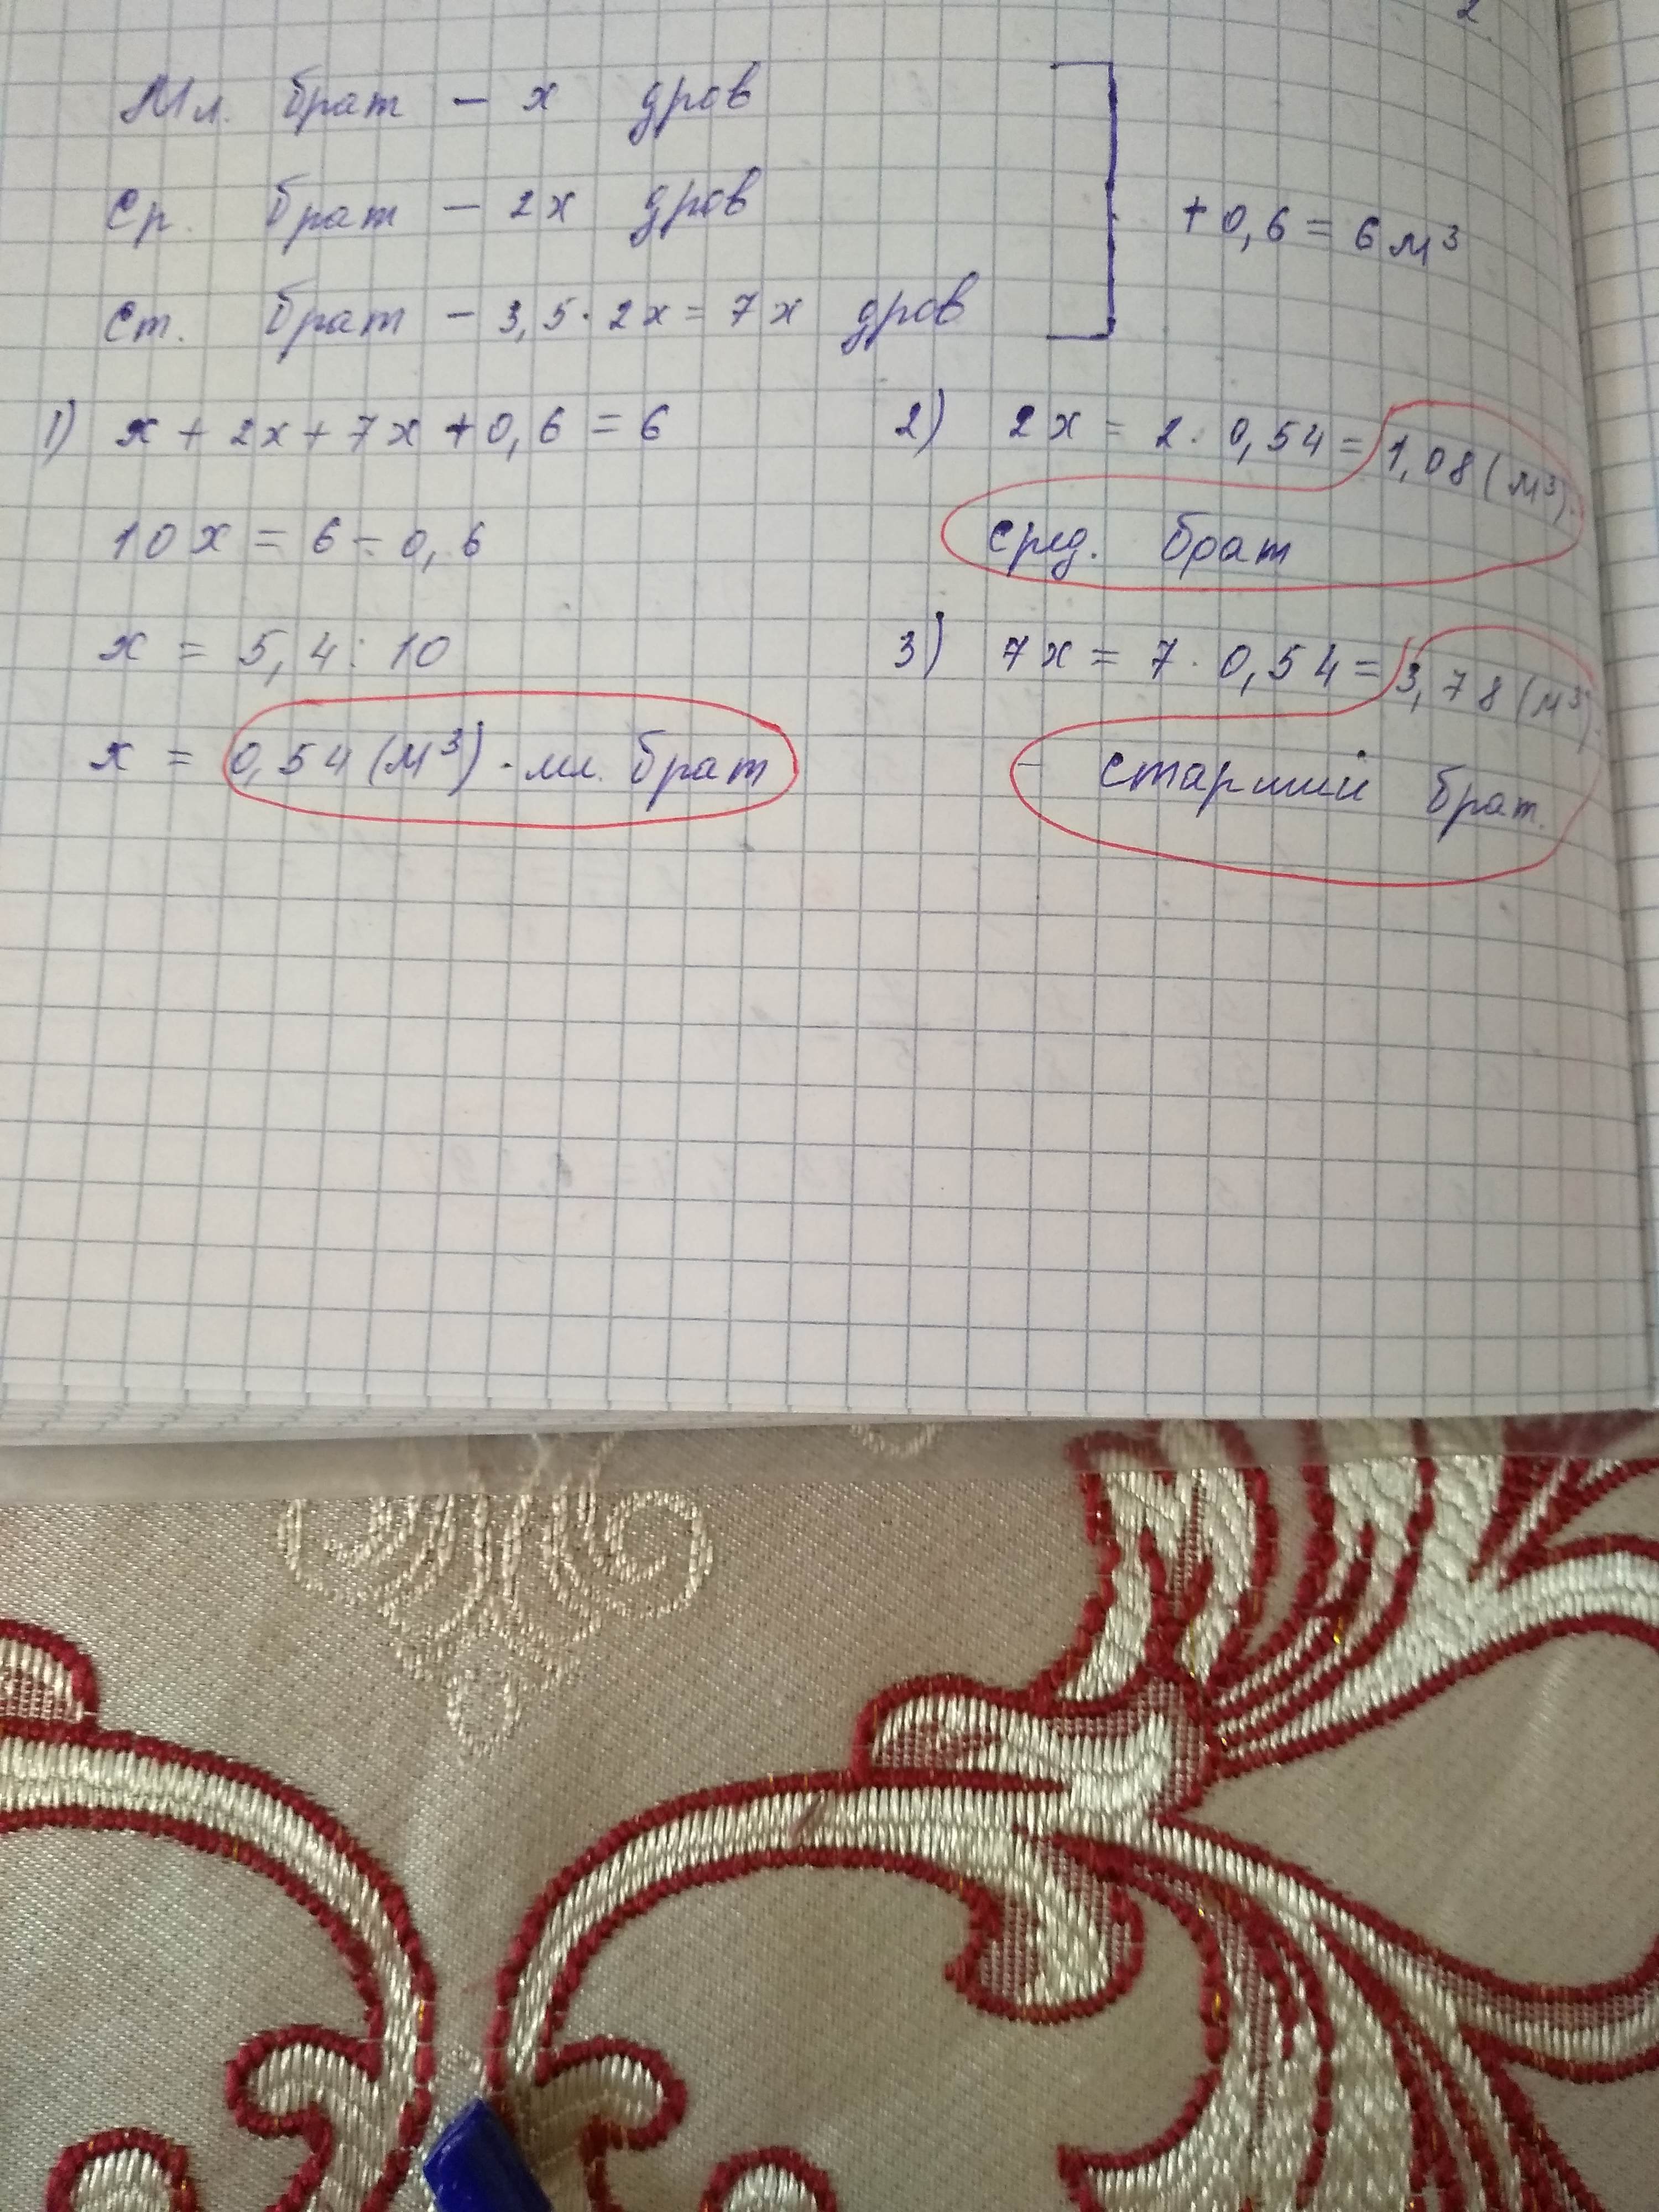 2
Мл. брат — x дров
Ср. брат — 2x дров
Ст. брат — 3,5 · 2x = 7x дров
+ 0,6 = 6 м³
1) x + 2x + 7x + 0,6 = 6
10x = 6 - 0,6
x = 5,4 : 10
x = 0,54 (м³) - мл. брат
2) 2x = 2 · 0,54 = 1,08 (м³) -
сред. брат
3) 7x = 7 · 0,54 = 3,78 (м³)
- старший брат.